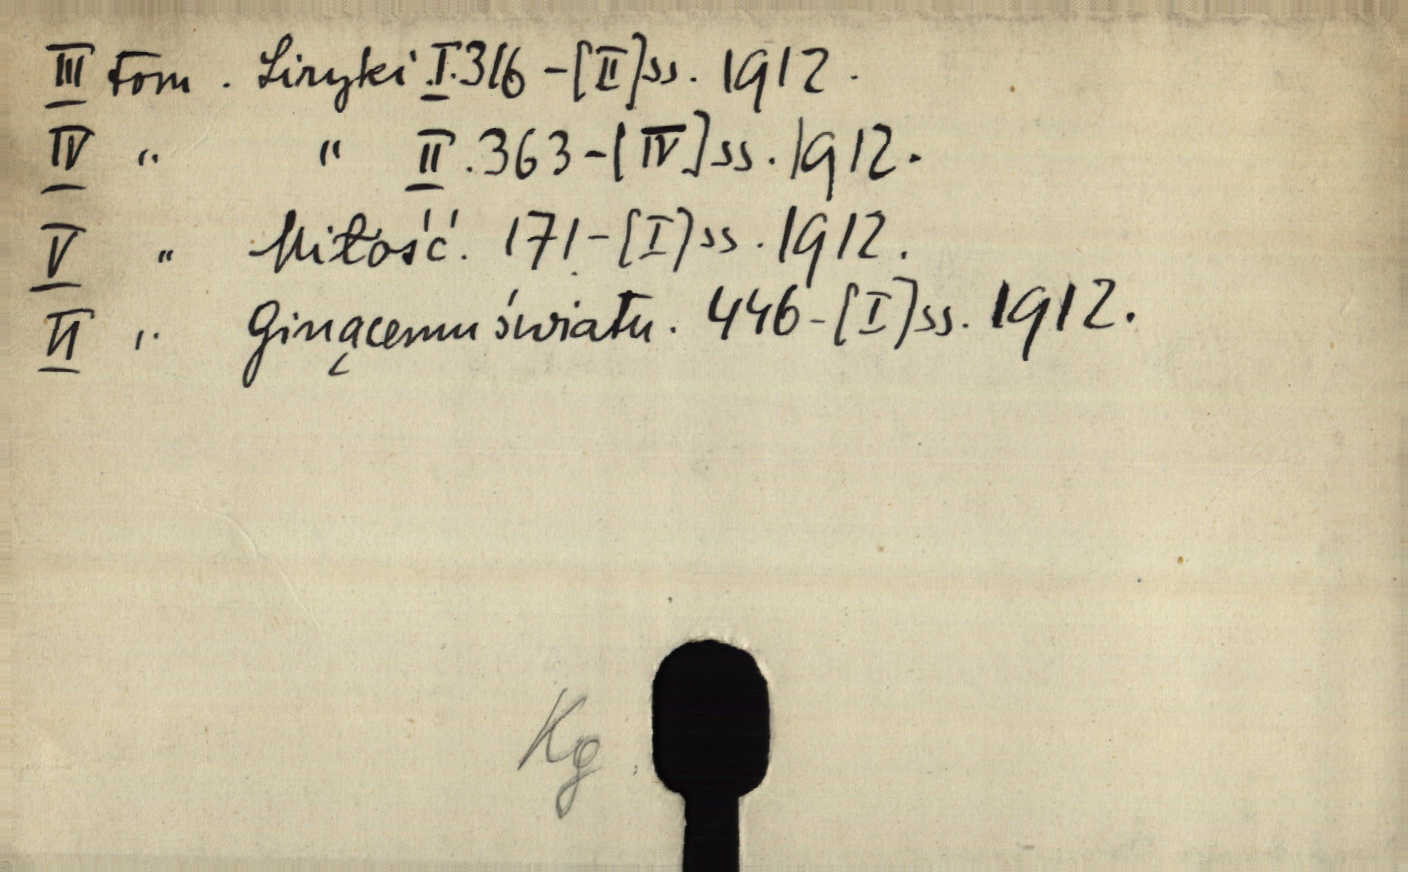 III tom. Liryki I. 316-[II] ss. 1912.
IV " " II. 363-[IV] ss. 1912.
V " Miłość. 171-[I] ss. 1912.
VI " Ginącemu światu. 446-[I] ss. 1912.
Kg.